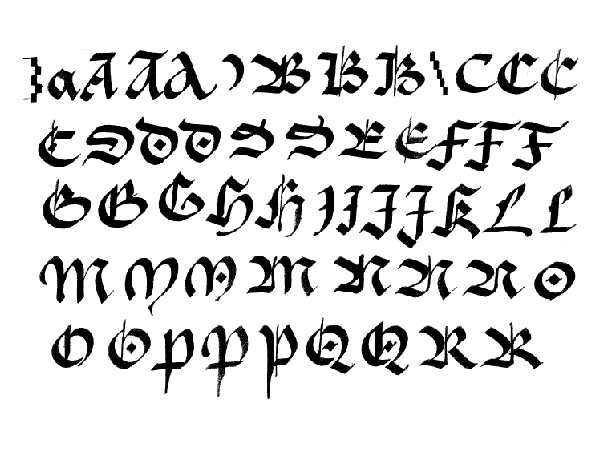 a A A A B B B C C C
C D D D E E F F F
G G G H H I I J J K L L
M M M M N N N O
O O P P P Q Q R R